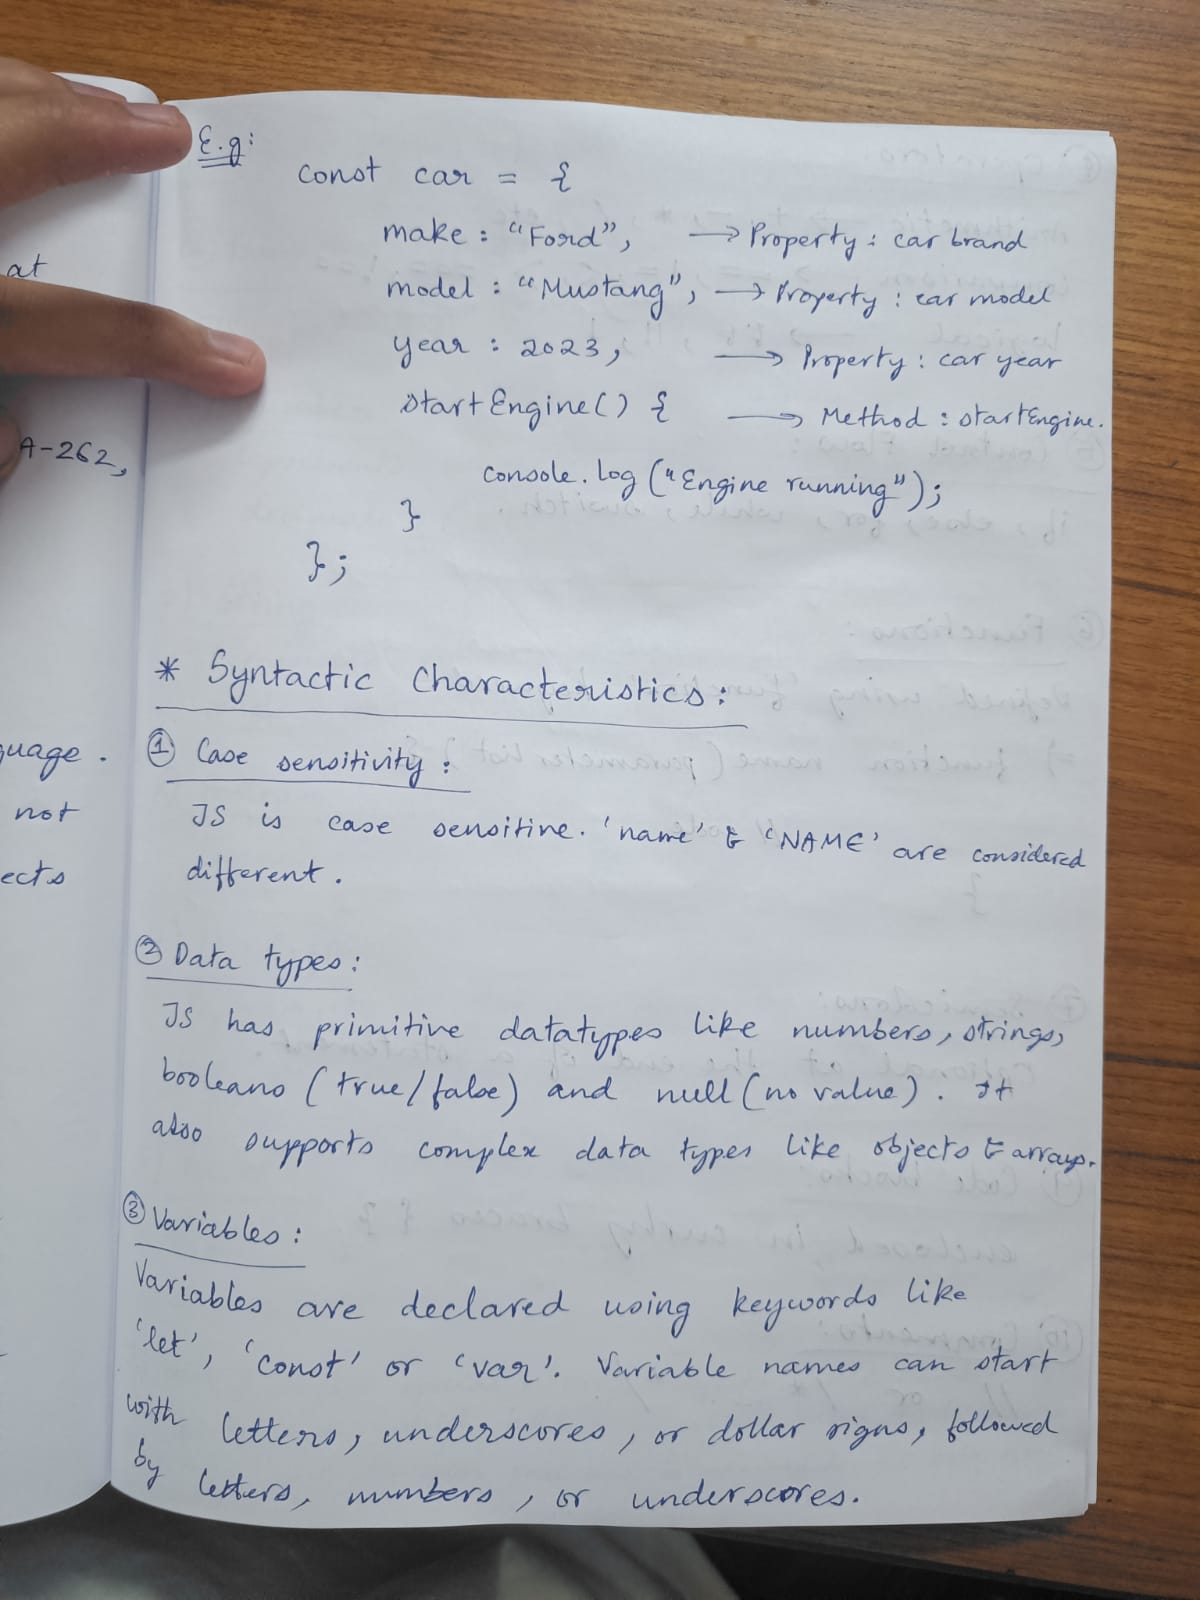 at
A-262,
guage.
not
ects
E.g:
const car = {
make: "Ford", → Property: car brand
model: "Mustang", → Property: car model
year: 2023, → Property: car year
startEngine() { → Method: startEngine.
console.log("Engine running");
}
};
* Syntactic Characteristics:
① Case sensitivity:
JS is case sensitive. 'name' & 'NAME' are considered
different.
② Data types:
JS has primitive datatypes like numbers, strings,
booleans (true/false) and null (no value). It
also supports complex data types like objects & arrays.
③ Variables:
Variables are declared using keywords like
'let', 'const' or 'var'. Variable names can start
with letters, underscores, or dollar signs, followed
by letters, numbers, or underscores.